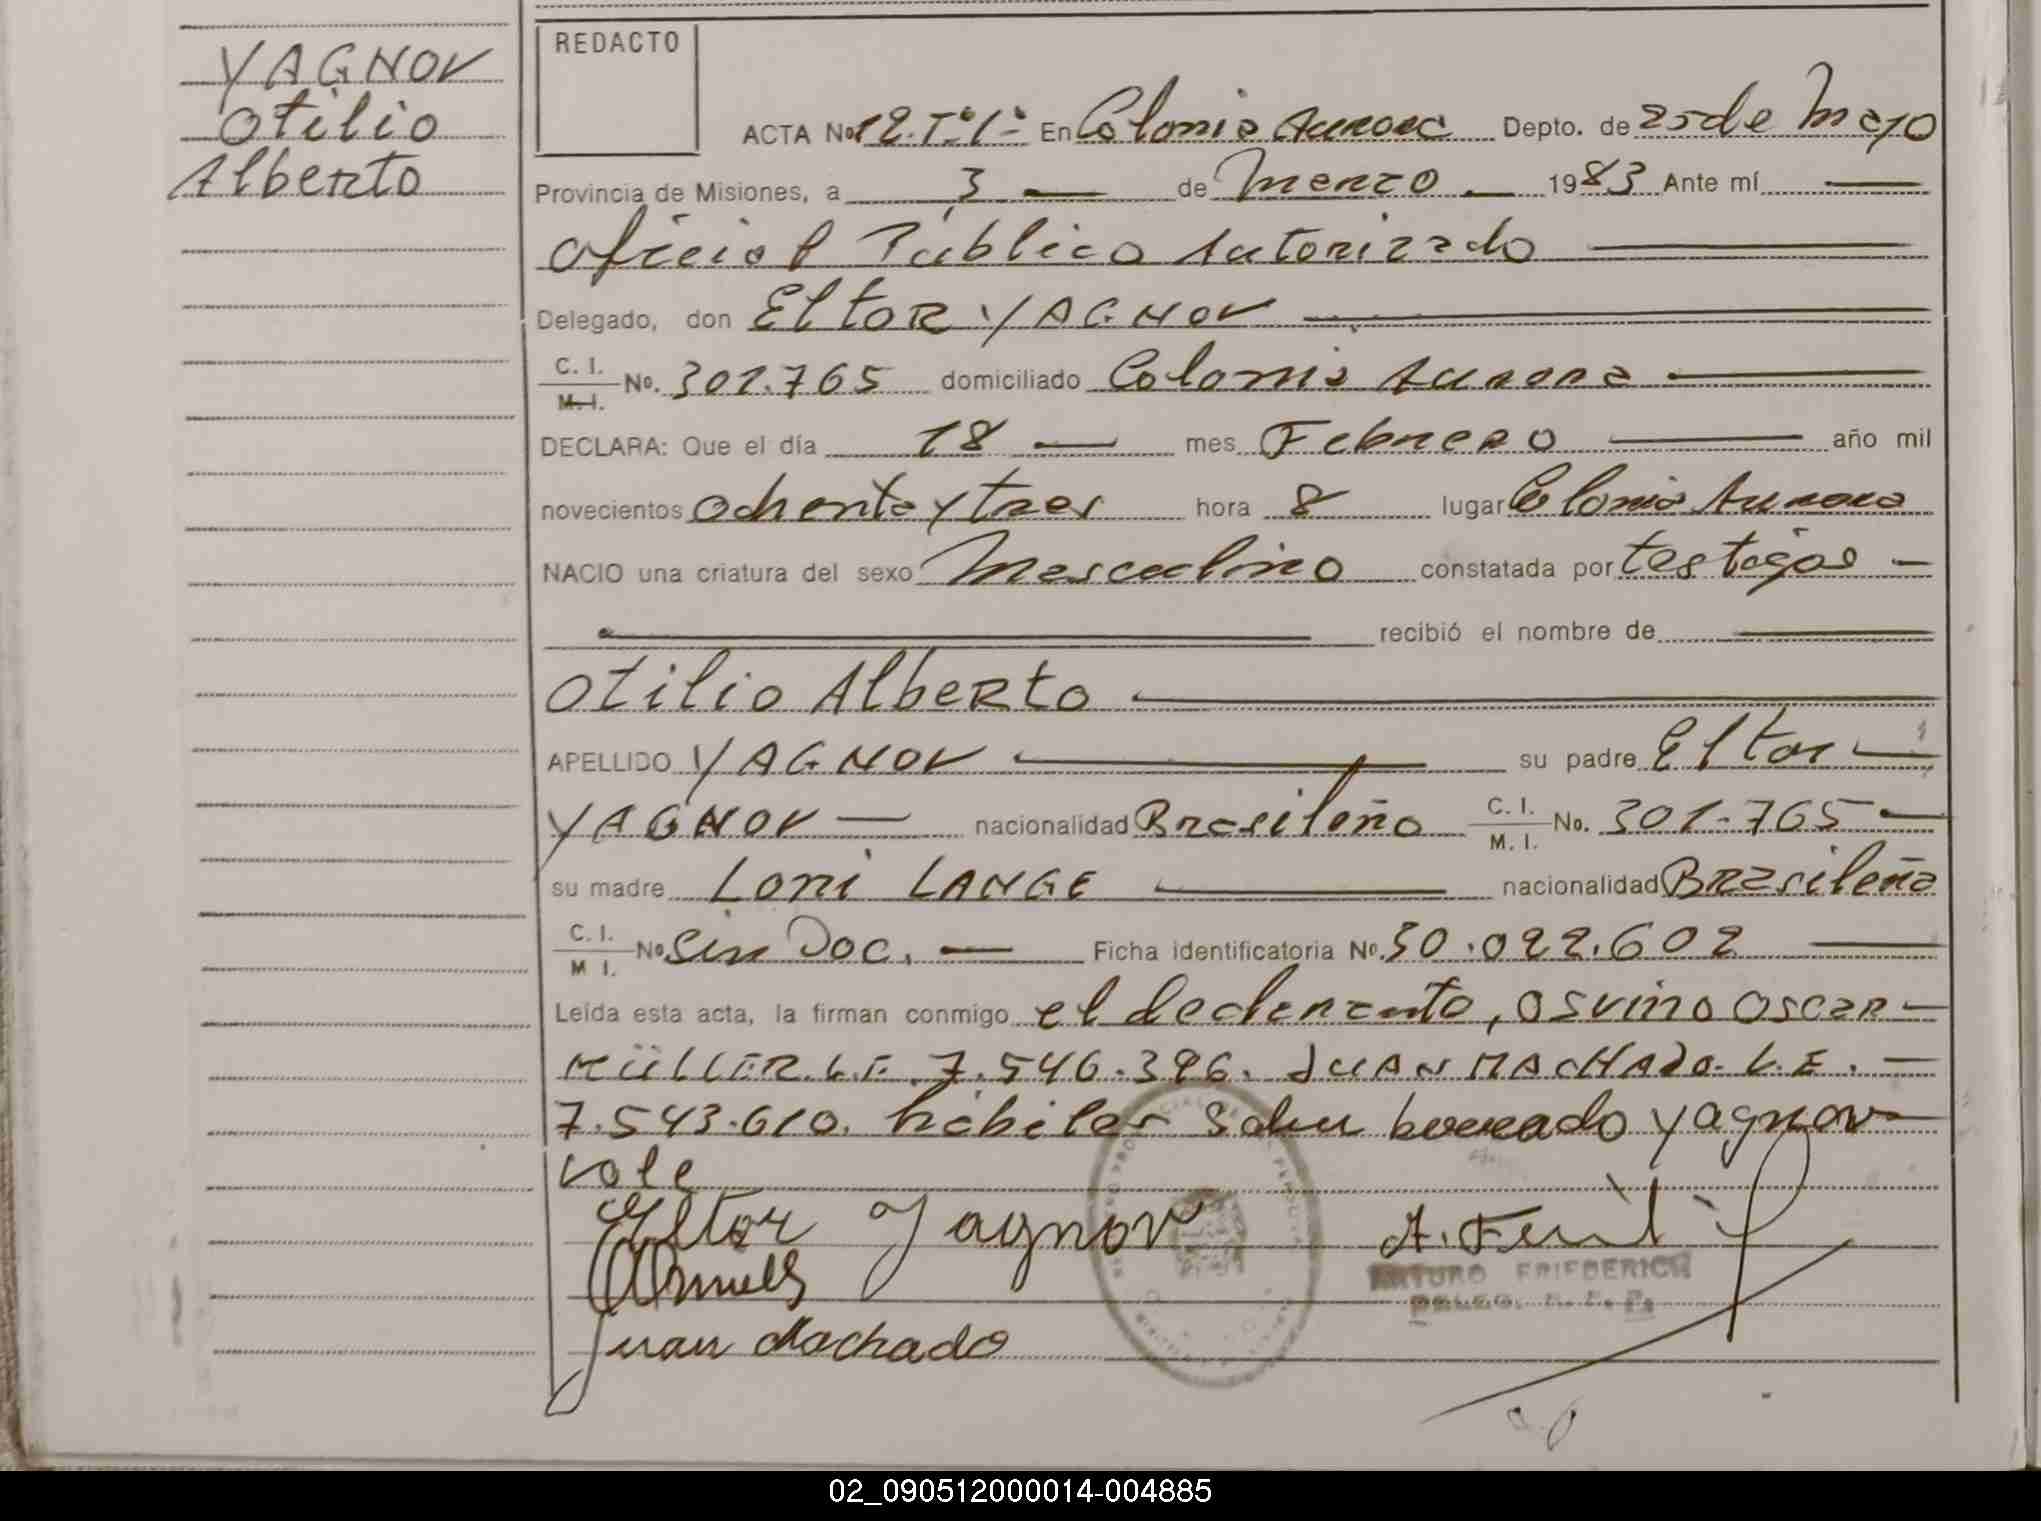 YAGNOV
Otilio
Alberto
REDACTO
ACTA No 12.Tº1º En Colonia Aurora Depto. de 25 de Mayo
Provincia de Misiones, a 3 de Marzo 1983 Ante mí
Oficial Público Autorizado
Delegado, don Eltor YAGNOV
C. I.
M. I. No. 301.765 domiciliado Colonia Aurora
DECLARA: Que el día 18 mes Febrero año mil
novecientos ochenta y tres hora 8 lugar Colonia Aurora
NACIO una criatura del sexo Masculino constatada por testigos
recibió el nombre de
Otilio Alberto
APELLIDO YAGNOV su padre Eltor
YAGNOV nacionalidad Brasileño C. I.
M. I. No. 301.765
su madre Loni LANGE nacionalidad Brasileña
C. I.
M I. No Sin Doc. Ficha identificatoria No. 30.022.602
Leída esta acta, la firman conmigo el declarante, Osvino Oscar
MÜLLER. L.E. 7.546.396. JUAN MACHADO. L.E.
7.543.610. hábiles Sobre borrado Yagnov
vale
Eltor Yagnov
A.
Juan Machado
ARTURO FRIEDERICH
DELEG.
02_090512000014-004885